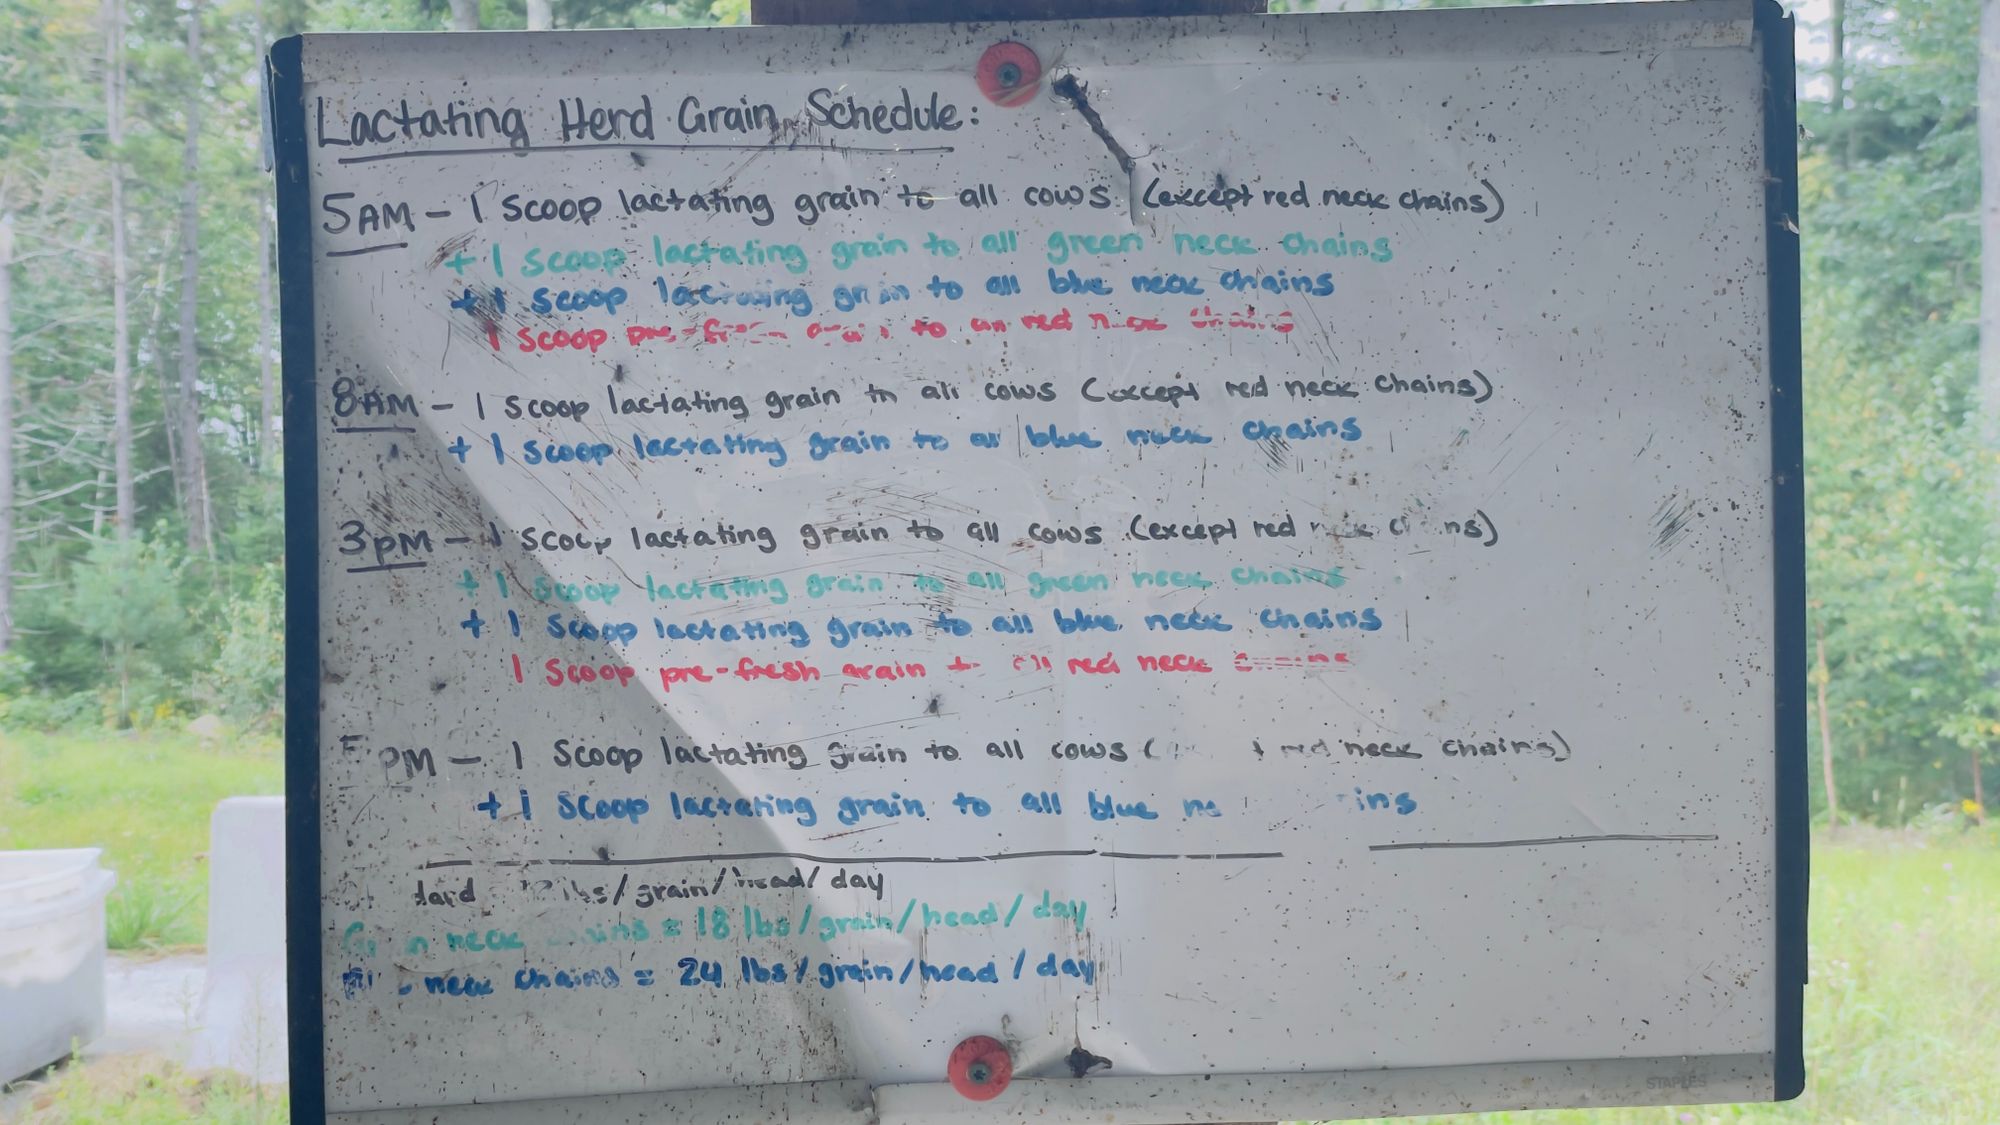 Lactating Herd Grain Schedule:
5AM - 1 Scoop lactating grain to all cows (except red neck chains)
+ 1 Scoop lactating grain to all green neck chains
+ 1 Scoop lactating grain to all blue neck chains
1 Scoop pre-fresh grain to all red neck chains
8AM - 1 Scoop lactating grain to all cows (except red neck chains)
+ 1 Scoop lactating grain to all blue neck chains
3PM - 1 Scoop lactating grain to all cows (except red neck chains)
+ 1 Scoop lactating grain to all green neck chains
+ 1 Scoop lactating grain to all blue neck chains
1 Scoop pre-fresh grain to all red neck chains
PM - 1 Scoop lactating grain to all cows ( red neck chains)
+ 1 Scoop lactating grain to all blue
lbs/grain/head/day
neck chains = 18 lbs/grain/head/day
neck chains = 24 lbs/grain/head/day
STAPLES